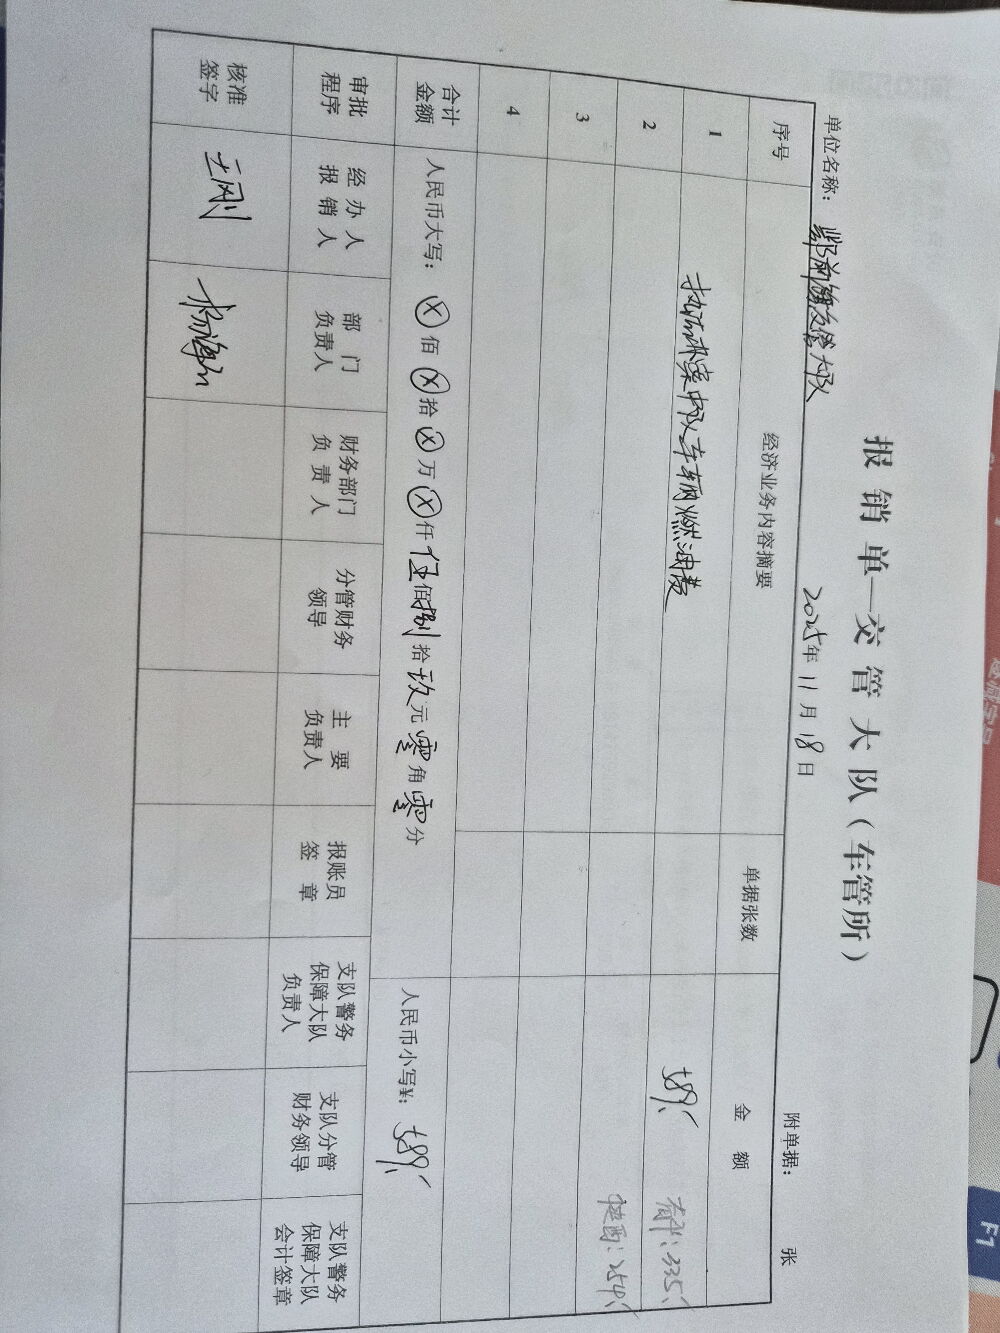 报销单—交管大队（车管所）
单位名称：鄯前旗交管大队 2025年11月18日 附单据： 张
序号 经济业务内容摘要 单据张数 金额
1 执法办案中队车辆燃油费 589.-
2
3
4
合计金额 人民币大写：ⓧ佰ⓧ拾ⓧ万ⓧ仟伍佰捌拾玖元零角零分 人民币小写¥：589.-
审批程序 经办人报销人 部门负责人 财务部门负责人 分管财务领导 主要负责人 报账员签章 支队警务保障大队负责人 支队分管财务领导 支队警务保障大队会计签章
核准签字 王刚
335.-
陕西：254.-
F1